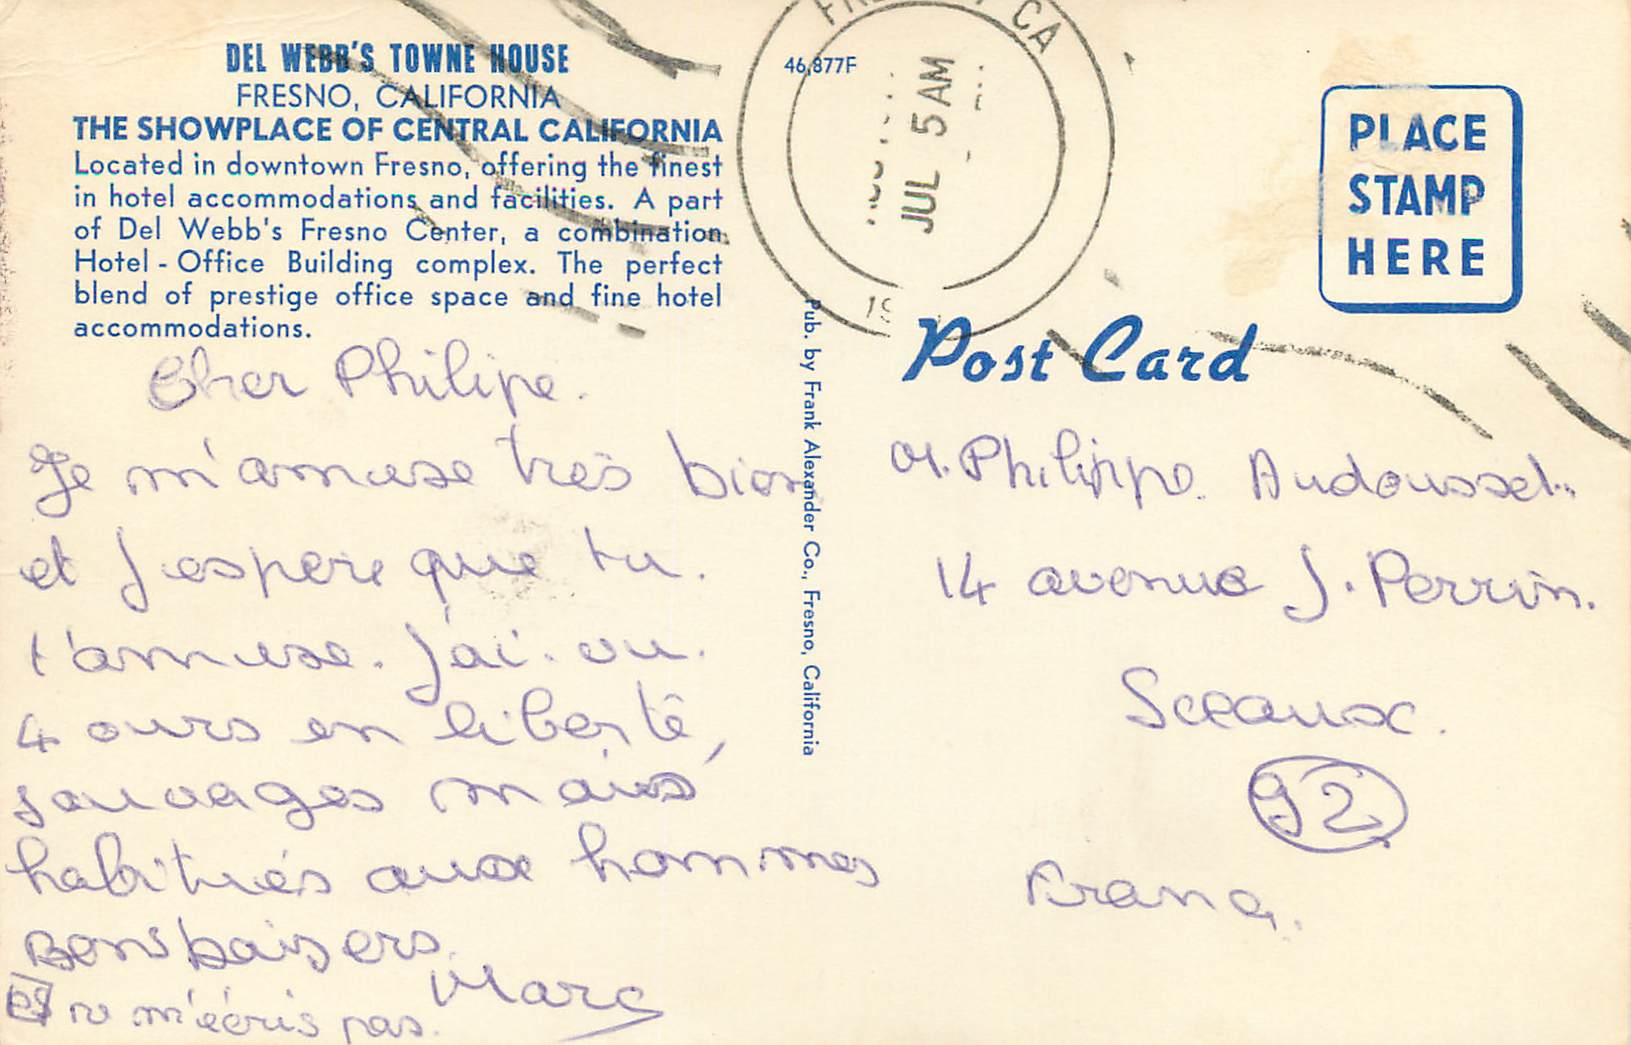 DEL WEBB'S TOWNE HOUSE
FRESNO, CALIFORNIA
THE SHOWPLACE OF CENTRAL CALIFORNIA
Located in downtown Fresno, offering the finest
in hotel accommodations and facilities. A part
of Del Webb's Fresno Center, a combination
Hotel - Office Building complex. The perfect
blend of prestige office space and fine hotel
accommodations.
Cher Philipe.
Je m'amuse très bien
et j espere que tu.
t'amuse. j'ai. vu.
4 ours en liberté,
sauvages mais
habitués aux hommes
Bons baisers.
Marc
PS ne m'écris pas.
46,877F
CA
JUL 5 AM
19
Pub. by Frank Alexander Co., Fresno, California
PLACE
STAMP
HERE
Post Card
M. Philippe. Audousset.
14 avenue J. Perrin.
Sceaux.
92
France.